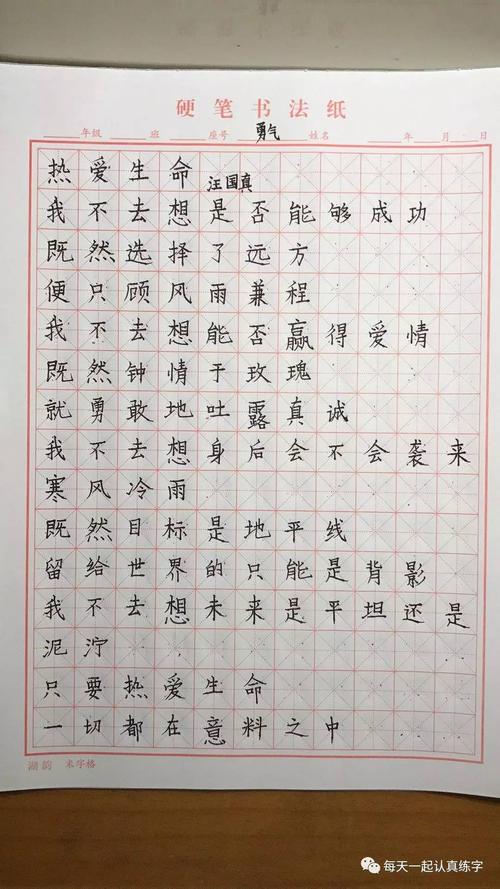 硬笔书法纸
年级 班 座号 勇气 姓名 年 月 日
热爱生命
汪国真
我不去想是否能够成功
既然选择了远方
便只顾风雨兼程
我不去想能否赢得爱情
既然钟情于玫瑰
就勇敢地吐露真诚
我不去想身后会不会袭来
寒风冷雨
既然目标是地平线
留给世界的只能是背影
我不去想未来是平坦还是
泥泞
只要热爱生命
一切都在意料之中
湖韵 米字格
每天一起认真练字